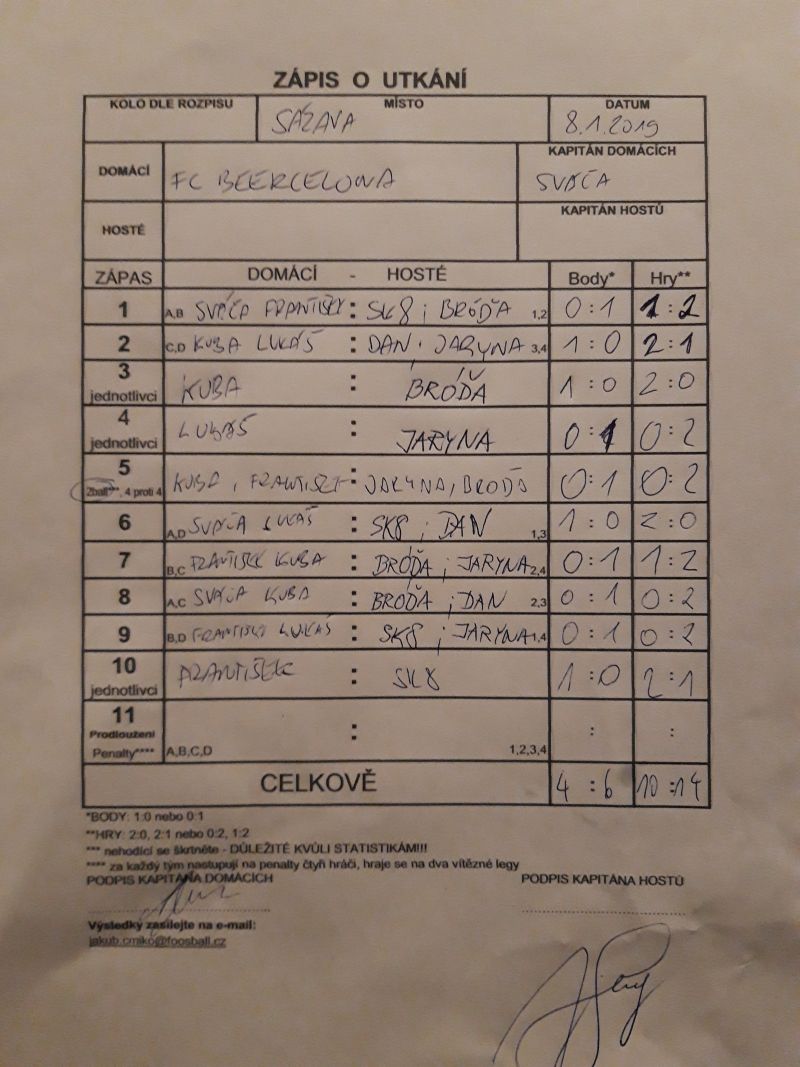 ZÁPIS O UTKÁNÍ
KOLO DLE ROZPISU MÍSTO DATUM
SÁZAVA 8.1.2019
DOMÁCÍ FC BEERCELONA KAPITÁN DOMÁCÍCH SVÁČA
HOSTÉ KAPITÁN HOSTŮ
ZÁPAS DOMÁCÍ - HOSTÉ Body* Hry**
1 A,B SVÁČA FRANTIŠEK : SK8 ; BRÓĎA 1,2 0:1 1:2
2 C,D KUBA LUKÁŠ : DAN, JARYNA 3,4 1:0 2:1
3 jednotlivci KUBA : BRÓĎA 1:0 2:0
4 jednotlivci LUKÁŠ : JARYNA 0:1 0:2
5 2ball***, 4 proti 4 KUBA, FRANTIŠEK : JARYNA, BRÓĎA 0:1 0:2
6 A,D SVÁČA LUKÁŠ : SK8 ; DAN 1,3 1:0 2:0
7 B,C FRANTIŠEK KUBA : BRÓĎA ; JARYNA 2,4 0:1 1:2
8 A,C SVÁČA KUBA : BRÓĎA ; DAN 2,3 0:1 0:2
9 B,D FRANTIŠEK LUKÁŠ : SK8 ; JARYNA 1,4 0:1 0:2
10 jednotlivci FRANTIŠEK : SK8 1:0 2:1
11 Prodloužení Penalty**** A,B,C,D : 1,2,3,4 : :
CELKOVĚ 4:6 10:14
*BODY: 1:0 nebo 0:1
**HRY: 2:0, 2:1 nebo 0:2, 1:2
*** nehodící se škrtněte - DŮLEŽITÉ KVŮLI STATISTIKÁM!!!
**** za každý tým nastupují na penalty čtyři hráči, hraje se na dva vítězné legy
PODPIS KAPITÁNA DOMÁCÍCH PODPIS KAPITÁNA HOSTŮ
Výsledky zasílejte na e-mail:
jakub.cmiko@foosball.cz